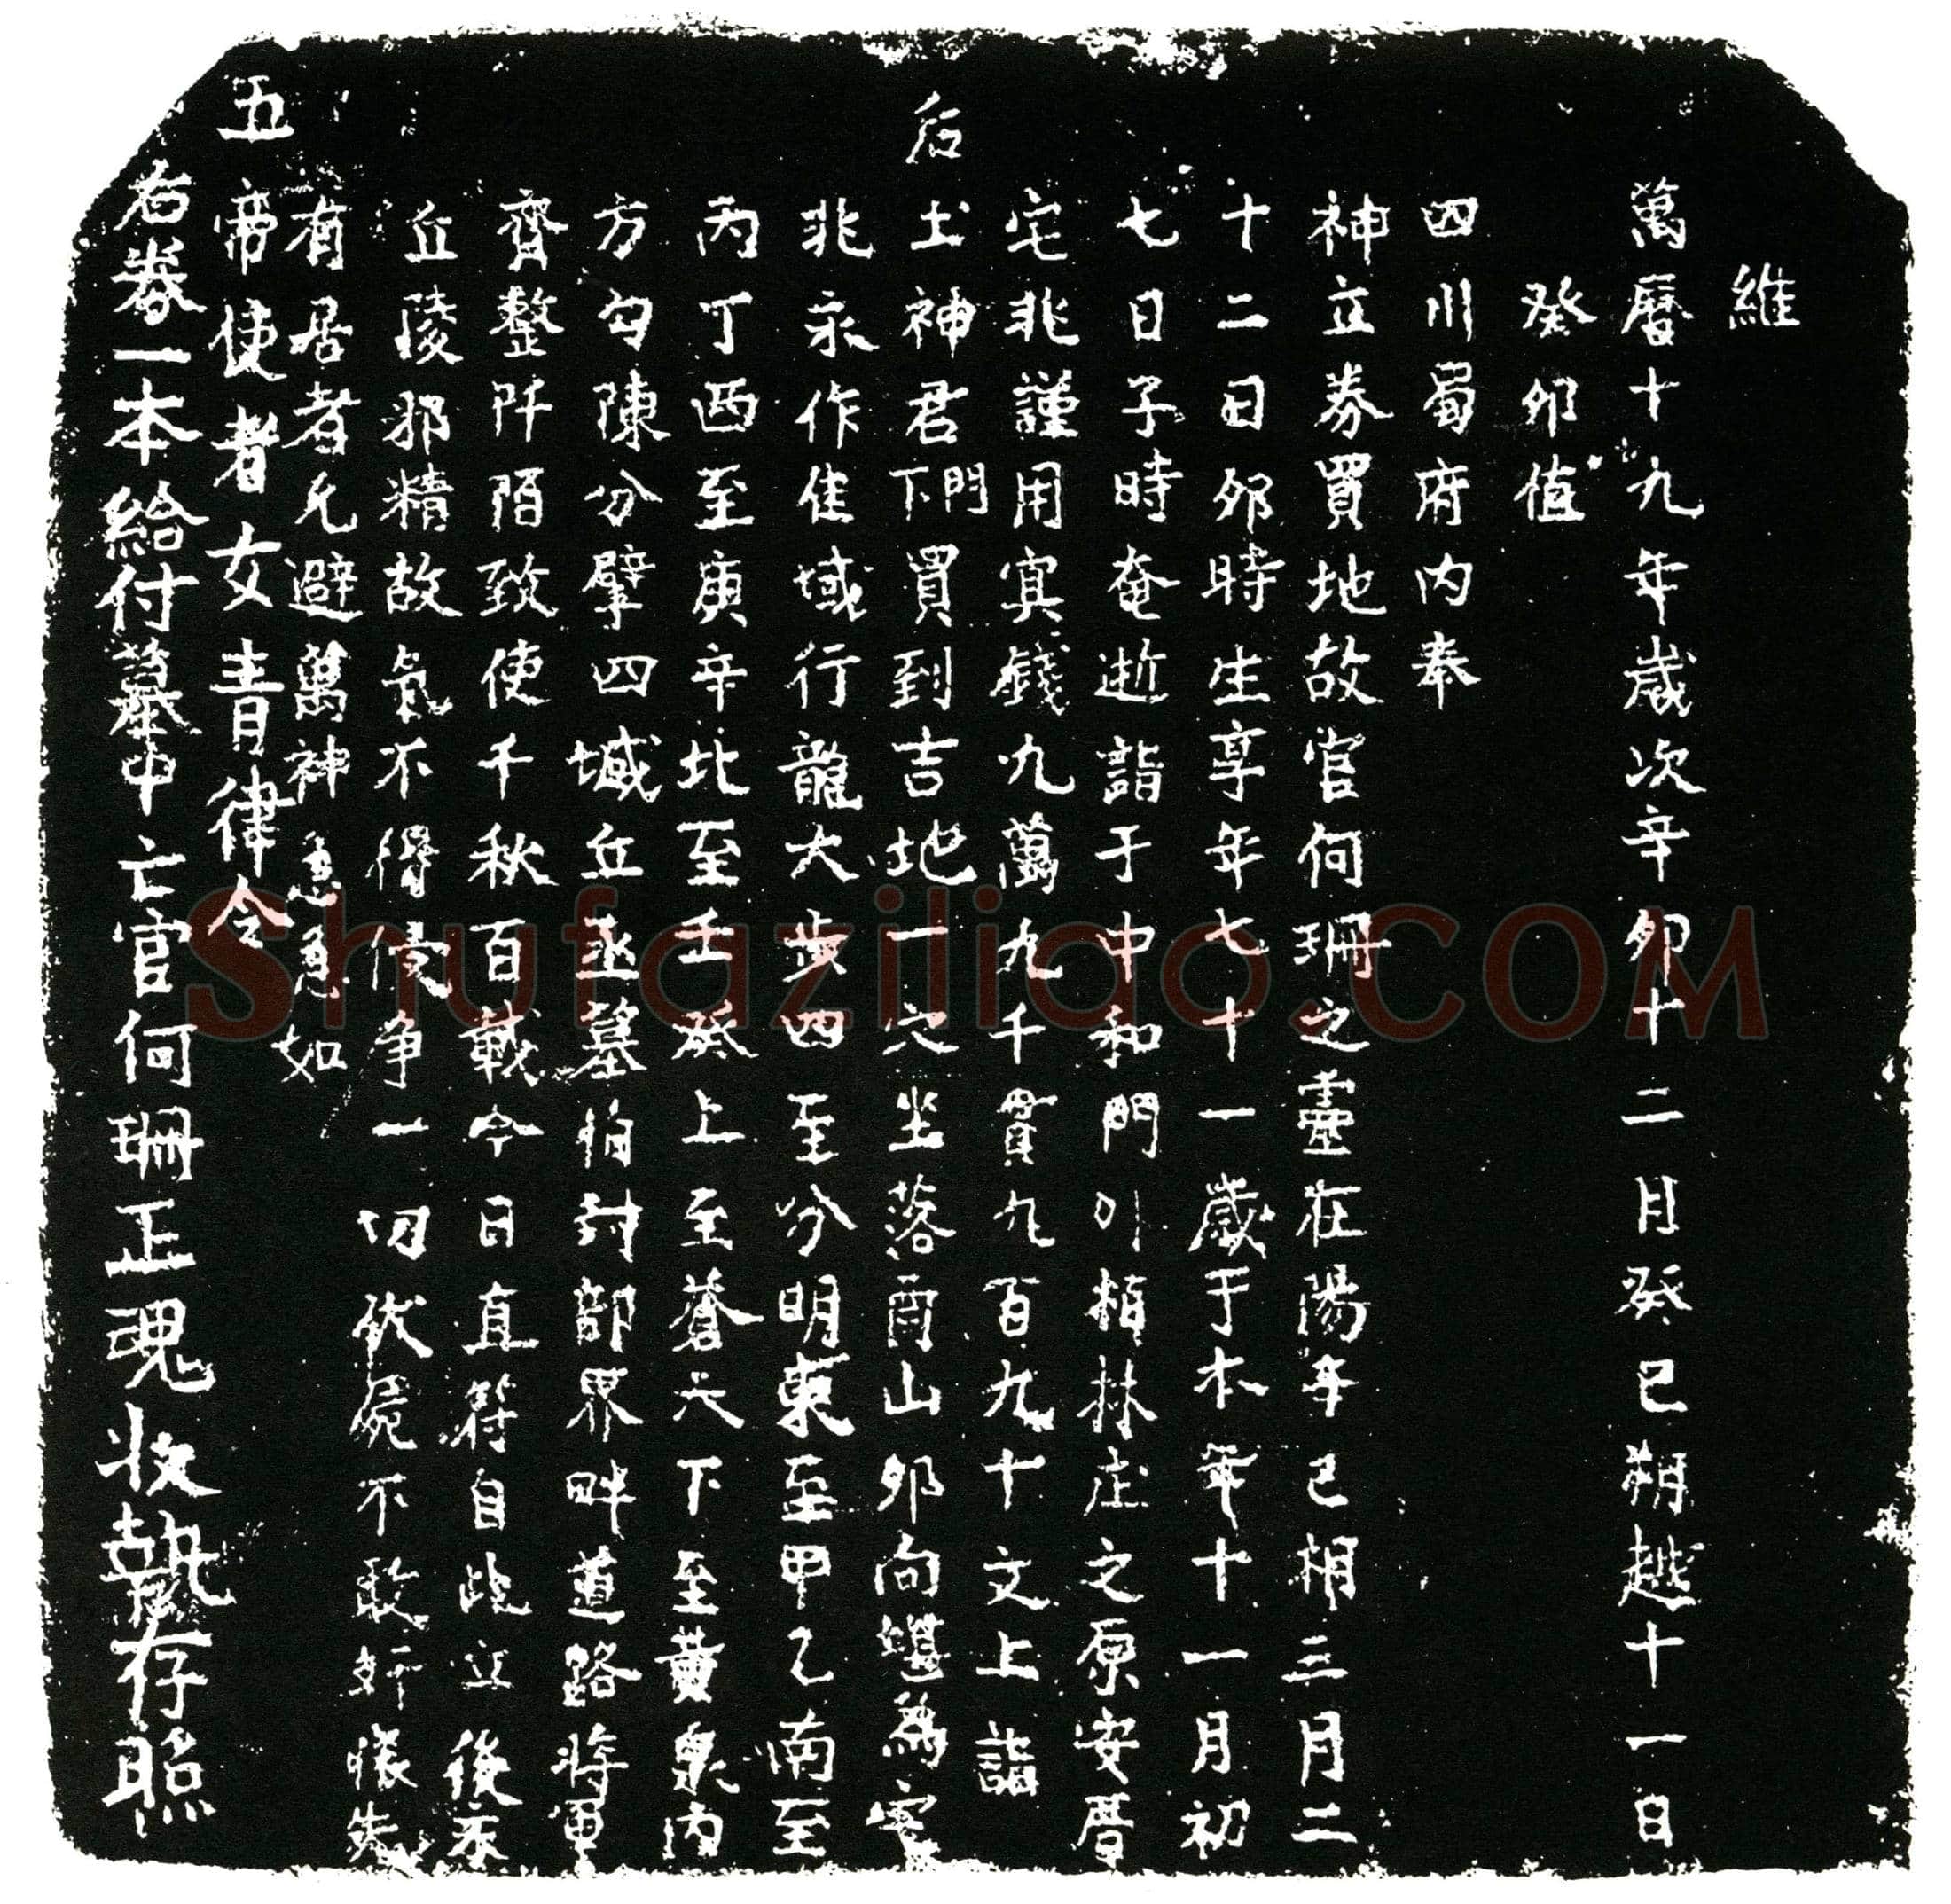 維
萬曆十九年歲次辛卯十二月癸巳朔越十一日
癸卯值
四川蜀府内奉
神立券買地故官何珊之靈在陽辛巳相三月二
十二日卯時生享年七十一歲于本年十一月初
七日子時奄逝詣于中和門外栢林庄之原安厝
宅兆謹用冥錢九萬九千九百九十文上詣
后土神君下門買到吉地一穴坐落酉山夘向堪為宅
兆永作佳城行龍大步四至分明東至甲乙南至
丙丁西至庚辛北至壬癸上至蒼天下至黃泉内
方勾陳分擘四域丘丞墓伯封部界畔道路將軍
齊整阡陌致使千秋百載今日直符自此立後永
丘陵邪精故氣不得侵爭一切伏屍不敢奸 先
有居者允避萬神急急如
五帝使者女青律令
右券一本給付墓中亡官何珊正魂收執存照
Shufaziliao.COM